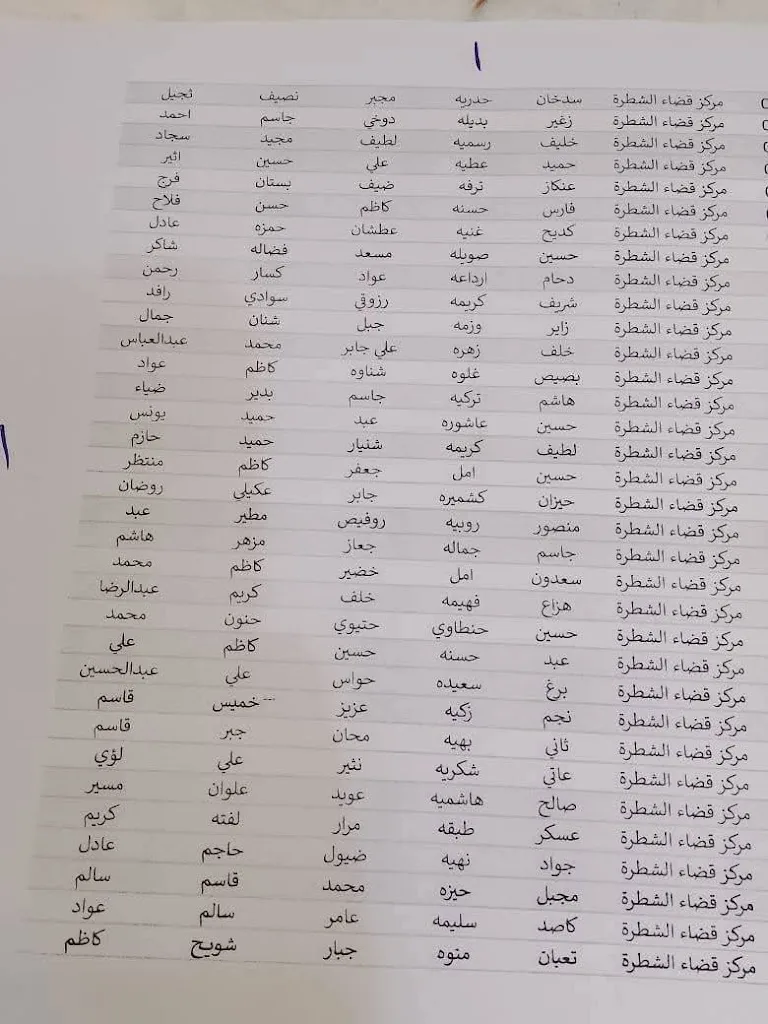 ١
مركز قضاء الشطرة سدخان حدريه مجبر نصيف ثجيل
مركز قضاء الشطرة زغير بديله دوخي جاسم احمد
مركز قضاء الشطرة خليف رسميه لطيف مجيد سجاد
مركز قضاء الشطرة حميد عطيه علي حسين اثير
مركز قضاء الشطرة عنكاز ترفه ضيف بستان فرج
مركز قضاء الشطرة فارس حسنه كاظم حسن فلاح
مركز قضاء الشطرة كديح غنيه عطشان حمزه عادل
مركز قضاء الشطرة حسين صويله مسعد فضاله شاكر
مركز قضاء الشطرة دحام ارداعه عواد كسار رحمن
مركز قضاء الشطرة شريف كريمه رزوقي سوادي رافد
مركز قضاء الشطرة زاير وزمه جبل شنان جمال
مركز قضاء الشطرة خلف زهره علي جابر محمد عبدالعباس
مركز قضاء الشطرة بصيص غلوه شناوه كاظم عواد
مركز قضاء الشطرة هاشم تركيه جاسم بدير ضياء
مركز قضاء الشطرة حسين عاشوره عبد حميد يونس
مركز قضاء الشطرة لطيف كريمه شنيار حميد حازم
مركز قضاء الشطرة حسين امل جعفر كاظم منتظر
مركز قضاء الشطرة حيزان كشميره جابر عكيلي روضان
مركز قضاء الشطرة منصور روبيه روفيص مطير عبد
مركز قضاء الشطرة جاسم جماله جعاز مزهر هاشم
مركز قضاء الشطرة سعدون امل خضير كاظم محمد
مركز قضاء الشطرة هزاع فهيمه خلف كريم عبدالرضا
مركز قضاء الشطرة حسين حنطاوي حتيوي حنون محمد
مركز قضاء الشطرة عبد حسنه حسين كاظم علي
مركز قضاء الشطرة برغ سعيده حواس علي عبدالحسين
مركز قضاء الشطرة نجم زكيه عزيز خميس قاسم
مركز قضاء الشطرة ثاني بهيه محان جبر قاسم
مركز قضاء الشطرة عاتي شكريه نثير علي لؤي
مركز قضاء الشطرة صالح هاشميه عويد علوان مسير
مركز قضاء الشطرة عسكر طبقه مرار لفته كريم
مركز قضاء الشطرة جواد نهيه ضيول حاجم عادل
مركز قضاء الشطرة مجبل حيزه محمد قاسم سالم
مركز قضاء الشطرة كاصد سليمه عامر سالم عواد
مركز قضاء الشطرة تعبان منوه جبار شويح كاظم